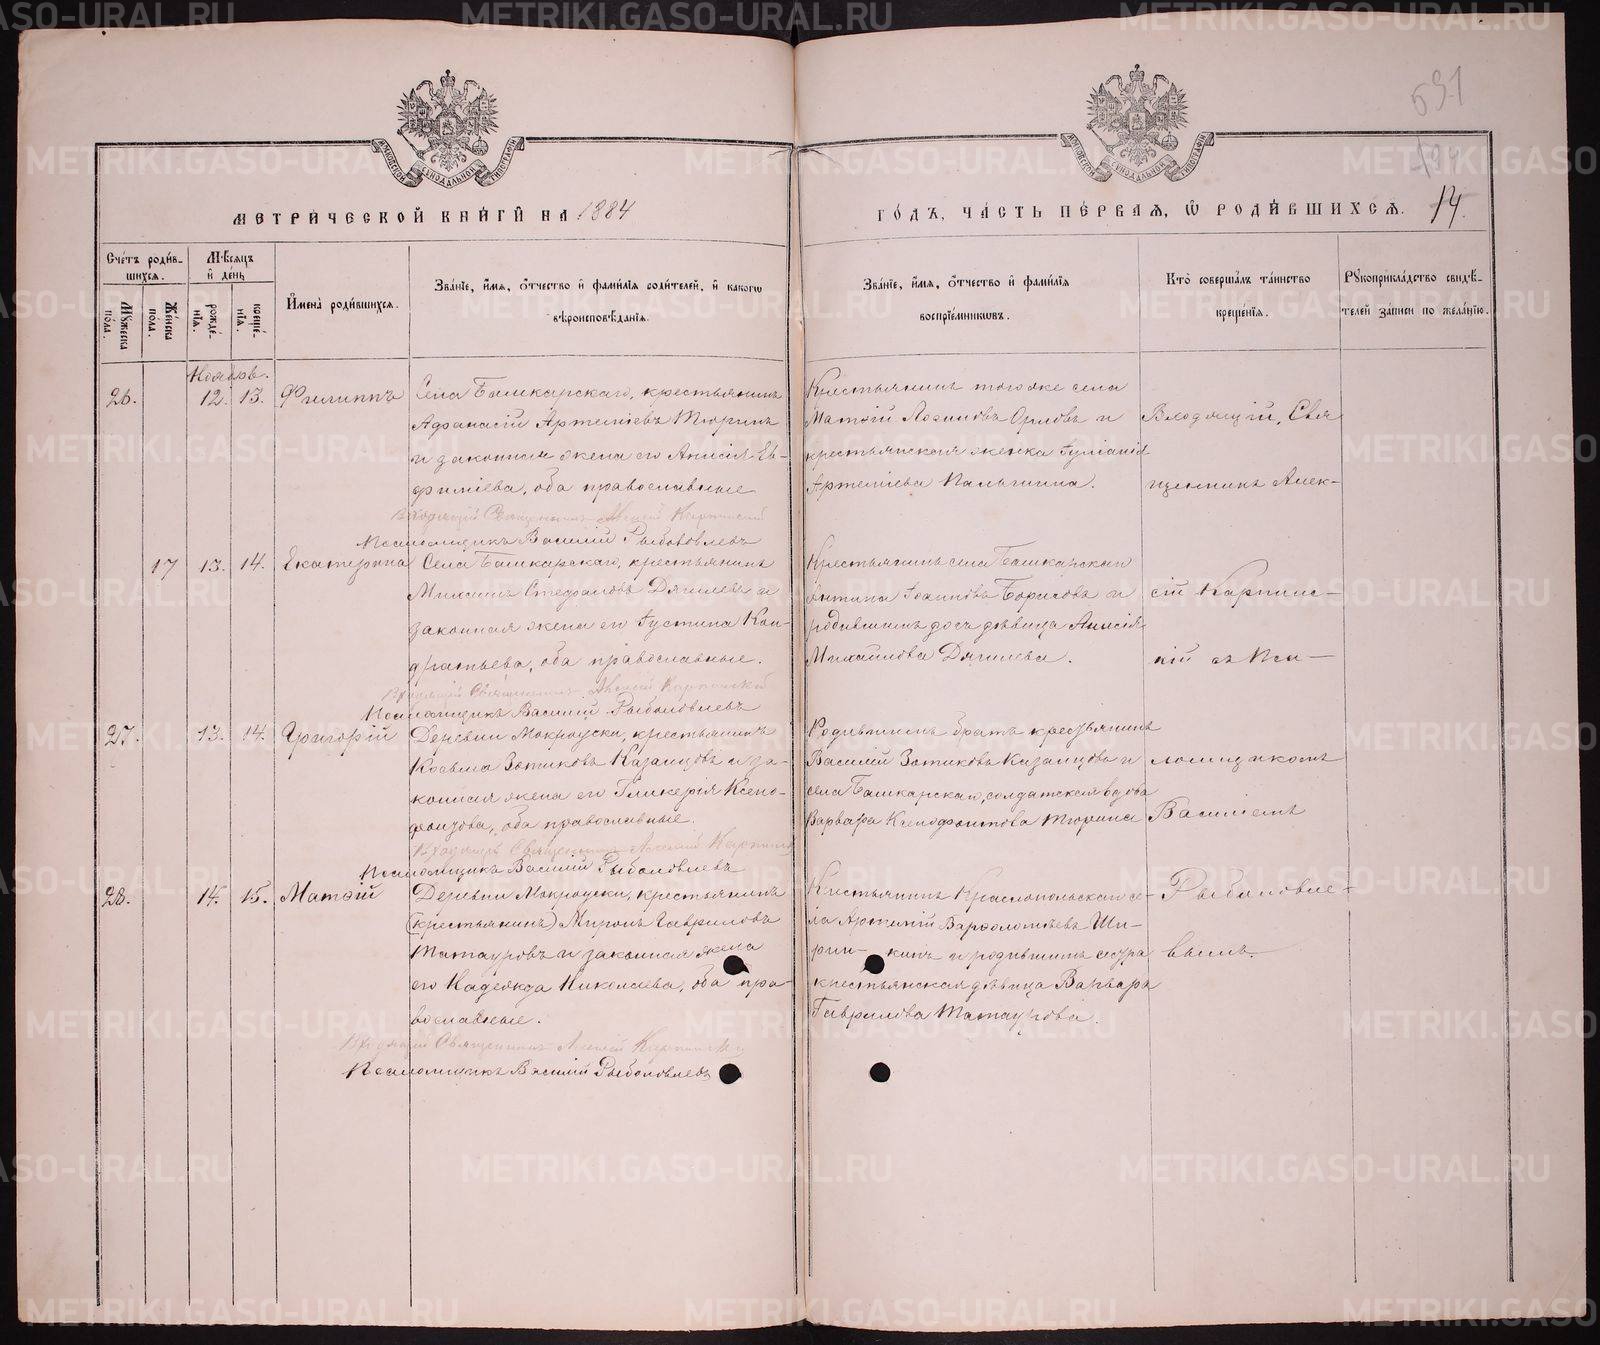 МОСКОВСКОЙ СѴНОДАЛЬНОЙ ТИПОГРАФІИ
МОСКОВСКОЙ СѴНОДАЛЬНОЙ ТИПОГРАФІИ
691
МЕТРИ́ЧЕСКОЙ КНИ́ГИ НА 1884
ГО́ДЪ, ЧА́СТЬ ПЕ́РВАЯ, Ѡ РОДИ́ВШИХСЯ. 14.
Сче́тъ роди́в-
шихся.
Мѣ́сяцъ
и де́нь
Мꙋжеска по́ла.
Же́нска по́ла.
рожде́-
нія.
креще́-
нія.
И҆мена̀ роди́вшихся.
Зва́ніе, и҆́мя, ѻ҆́тчество и҆ фами́лія роди́телей, и҆ како́гѡ
вѣроисповѣ́данія.
Зва́ніе, и҆́мя, ѻ҆́тчество и҆ фами́лія
воспріе́мникѡвъ.
Кто̀ соверша́лъ та́инство
креще́нія.
Рꙋкоприкла́дство свидѣ́-
телей за́писи по жела́нію.
Ноябрь.
26. 12. 13. Филиппъ
Села Башкарскаго, крестьянинъ
Афанасій Артеміевъ Тюринъ
и законная жена его Анисія Ев-
фиміева, оба православные
Входящій Священникъ Алексій Карпинскій
Псаломщикъ Василій Рыболовлевъ
Крестьянинъ того же села
Матѳій Логиновъ Орловъ и
крестьянская женка Іуліанія
Артеміева Палкина.
Входящій, Свя
щенникъ Алек-
17 13. 14. Екатерина
Села Башкарскаго, крестьянинъ
Михаилъ Стефановъ Дягилевъ и
законная жена его Іустина Кон-
дратьева, оба православные.
Входящій Священникъ Алексій Карпинскій
Псаломщикъ Василій Рыболовлевъ
Крестьянинъ села Башкарскаго
Антипа Іоанновъ Боричовъ и
родившимъ дочь дѣвица Анисія
Михаилова Дягилева.
сій Карпинс-
кій съ Пса-
27. 13. 14. Григорій
Деревни Мокроуски, крестьянинъ
Косьма Зотиковъ Казанцовъ и за-
конная жена его Гликерія Ксено-
фонтова, оба православные.
Входящій Священникъ Алексій Карпинскій
Псаломщикъ Василій Рыболовлевъ
Родившимъ братъ крестьянинъ
Василій Зотиковъ Казанцовъ и
села Башкарскаго, солдатская вдова
Варвара Ксенофонтова Тюрина
ломщикомъ
Василіемъ
28. 14. 15. Матѳій
Деревни Мокроуски, крестьянинъ
(крестьянинъ) Миронъ Гавриловъ
Татауровъ и законная жена
его Надежда Николаева, оба пра-
вославные.
Входящій Священникъ Алексій Карпинскій
Псаломщикъ Василій Рыболовлевъ
Крестьянинъ Краснопольскаго се-
ла Артемій Варѳоломіевъ Ши-
рин- кинъ и родившимъ сестра
крестьянская дѣвица Варвара
Гаврилова Татаурова.
Рыболовле-
вымъ.
METRIKI.GASO-URAL.RU